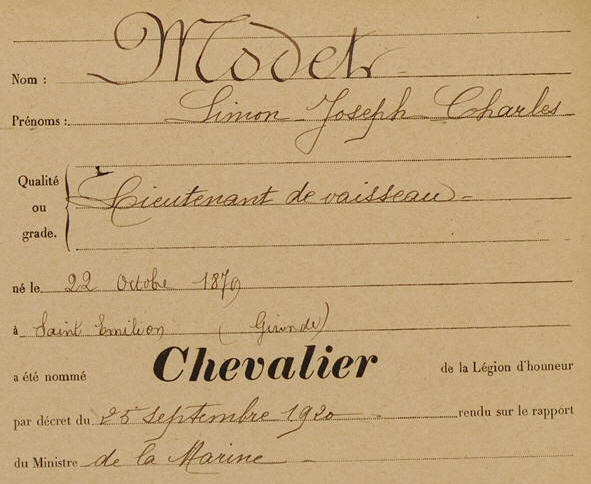 Nom : Modet
Prénoms : Simon Joseph Charles
Qualité
ou
grade.
Lieutenant de vaisseau
né le 22 Octobre 1879
à Saint Emilion (Gironde)
a été nommé Chevalier de la Légion d'honneur
par décret du 25 septembre 1920 rendu sur le rapport
du Ministre de la Marine